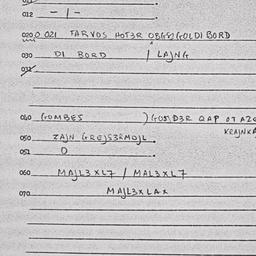 012 - 1 -
020 021 TARVOS HOT3R OBGEZ GOLDI BORD
030 DI BORD / LAJNG
032
040 GOMBES ) GOSJD3R QAP OT AZG
KRAJNKA
050 ZAJN GREJS3RMOJL.
051 O
060 MAJL3XL7 / MAL3XL7
070 MAJL3XLAX